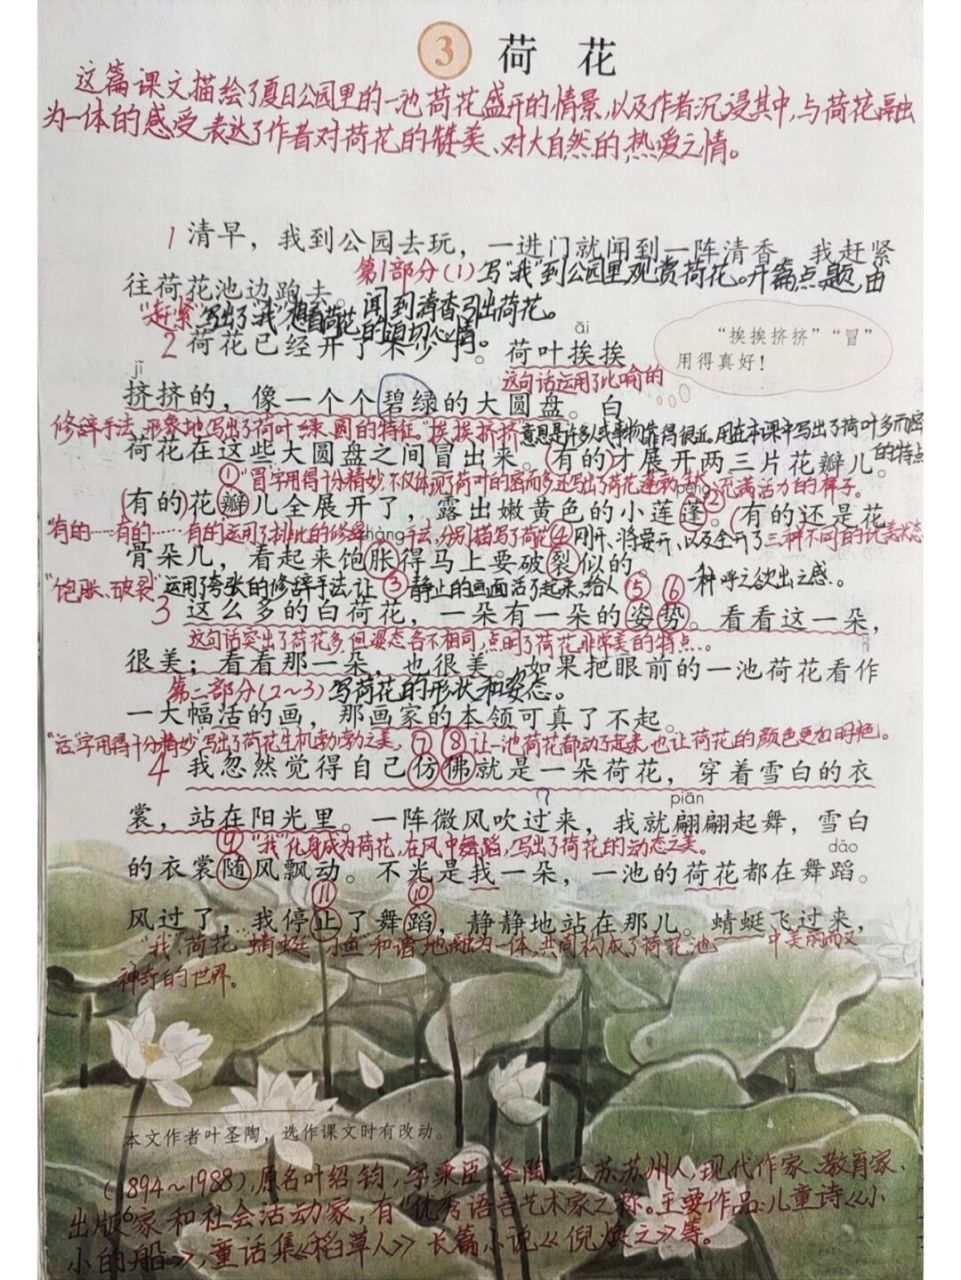 3 荷花
这篇课文描绘了夏日公园里的一池荷花盛开的情景,以及作者沉浸其中,与荷花融
为一体的感受,表达了作者对荷花的赞美、对大自然的热爱之情。
1 清早，我到公园去玩，一进门就闻到一阵清香，我赶紧
第1部分(1)写"我"到公园里观赏荷花。开篇点题,由
往荷花池边跑去。
闻到清香引出荷花。
"赶紧"写出了"我"想看荷花的迫切心情。
2 荷花已经开了不少了。荷叶挨挨
āi
"挨挨挤挤""冒"
用得真好！
jǐ
这句话运用了比喻的
挤挤的，像一个个碧绿的大圆盘。白
修辞手法,形象地写出了荷叶绿、圆的特征。"挨挨挤挤"意思是许多人或事物靠得很近。用在本课中写出了荷叶多而密
的特点
荷花在这些大圆盘之间冒出来。(有的)才展开两三片花瓣儿。
①"冒"字用得十分精妙,不仅体现了荷叶的密而多,还写出了荷花蓬勃、充满活力的样子。
péng
(有的)花瓣儿全展开了，露出嫩黄色的小莲蓬。②(有的还是花
"有的……有的……有的"运用了排比的修辞手法,分别描写了荷花④刚开、将要开、以及全开了三种不同的优美状态
zhàng
骨朵儿，看起来饱胀得马上要破裂似的。
"饱胀、破裂"运用了夸张的修辞手法,让③静止的画面活了起来,给人⑤⑥一种呼之欲出之感。
3 这么多的白荷花，一朵有一朵的姿势。看看这一朵，
这句话突出了荷花多,但姿态各不相同,点明了荷花非常美的特点。
很美；看看那一朵，也很美。如果把眼前的一池荷花看作
第二部分(2~3)写荷花的形状和姿态。
一大幅活的画，那画家的本领可真了不起。
"活"字用得十分精妙"写出了荷花生机勃勃之美,⑦⑧让一池荷花都动了起来,也让荷花的颜色更加明艳。
4 我忽然觉得自己仿佛就是一朵荷花，穿着雪白的衣
piān
裳，站在阳光里。一阵微风吹过来，我就翩翩起舞，雪白
⑨"我"化身成为荷花,在风中舞蹈,写出了荷花的动态之美。
dǎo
的衣裳随风飘动。不光是我一朵，一池的荷花都在舞蹈。
⑪ ⑩
风过了，我停止了舞蹈，静静地站在那儿。蜻蜓飞过来，
"我、荷花、蜻蜓、小鱼"和谐地融为一体,共同构成了荷花池中美丽而又
神奇的世界。
本文作者叶圣陶，选作课文时有改动。
(1894~1988),原名叶绍钧,字秉臣、圣陶。江苏苏州人,现代作家、教育家、
出版家和社会活动家,有"优秀语言艺术家"之称。主要作品:儿童诗《小
6
小的船》,童话集《稻草人》长篇小说《倪焕之》等。